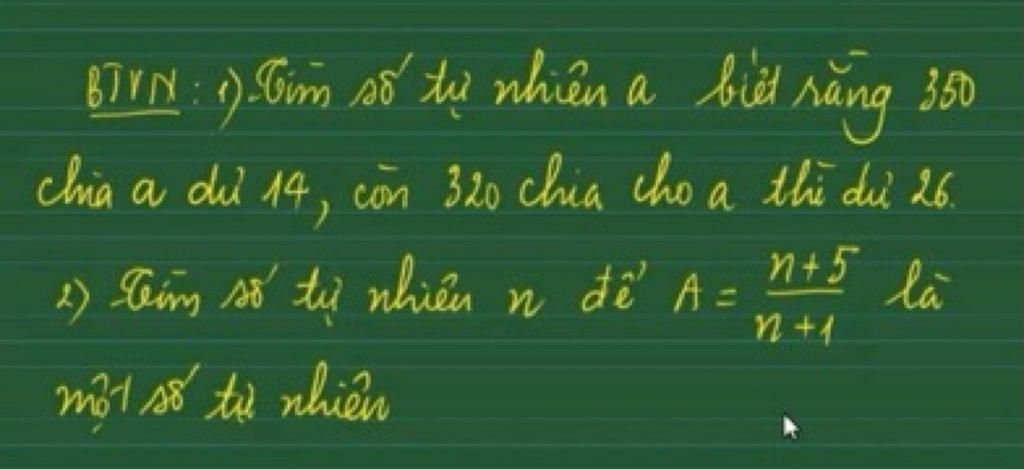 BTVN: 1) Tìm số tự nhiên a biết rằng 350
chia a dư 14, còn 320 chia cho a thì dư 26.
2) Tìm số tự nhiên n để A = \frac{n+5}{n+1} là
một số tự nhiên